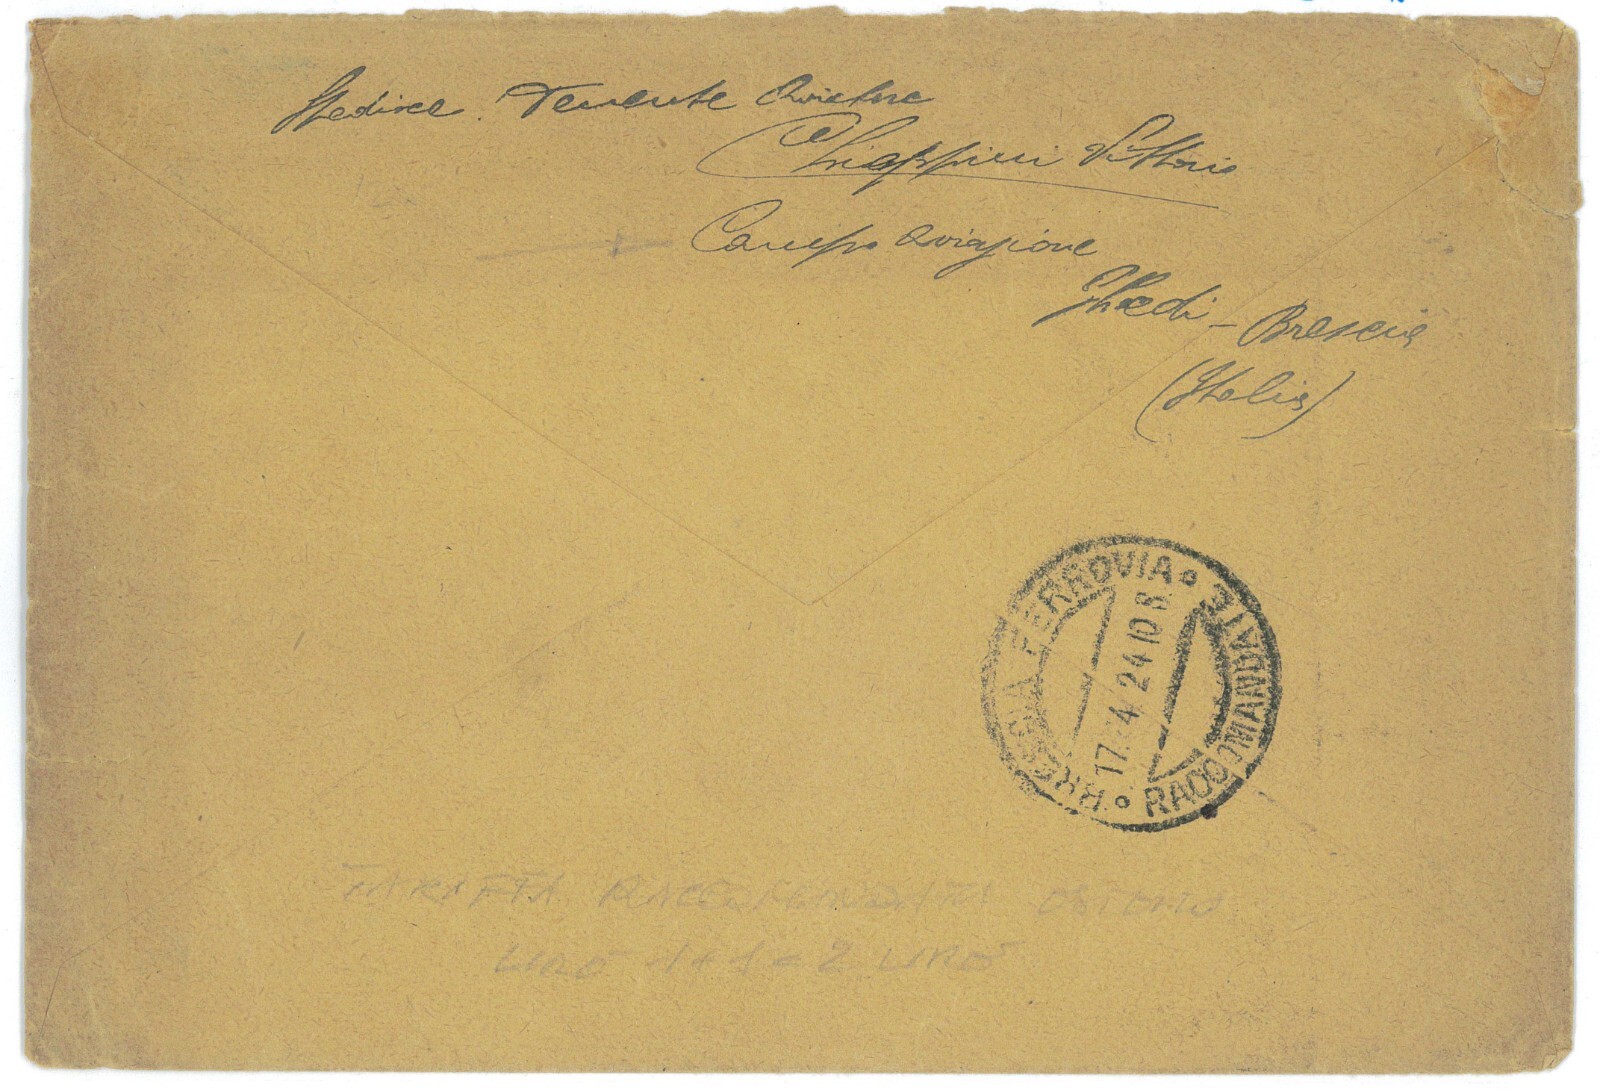 Spedisce: Tenente Aviatore
Chiappini Vittorio
Campo Aviazione
Ghedi - Brescia
(Italia)
BRESCIA FERROVIA
RACCOMANDATE
17. 4 24 10 S.
TARIFFA RACCOMANDATA ESTERO
LIRE 1+1=2 LIRE